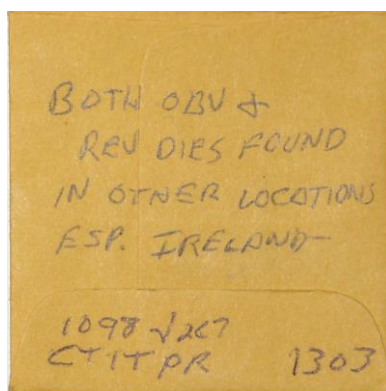 BOTH OBV &
REV DIES FOUND
IN OTHER LOCATIONS
ESP. IRELAND-
1098 √2C7
CTITPR 1303